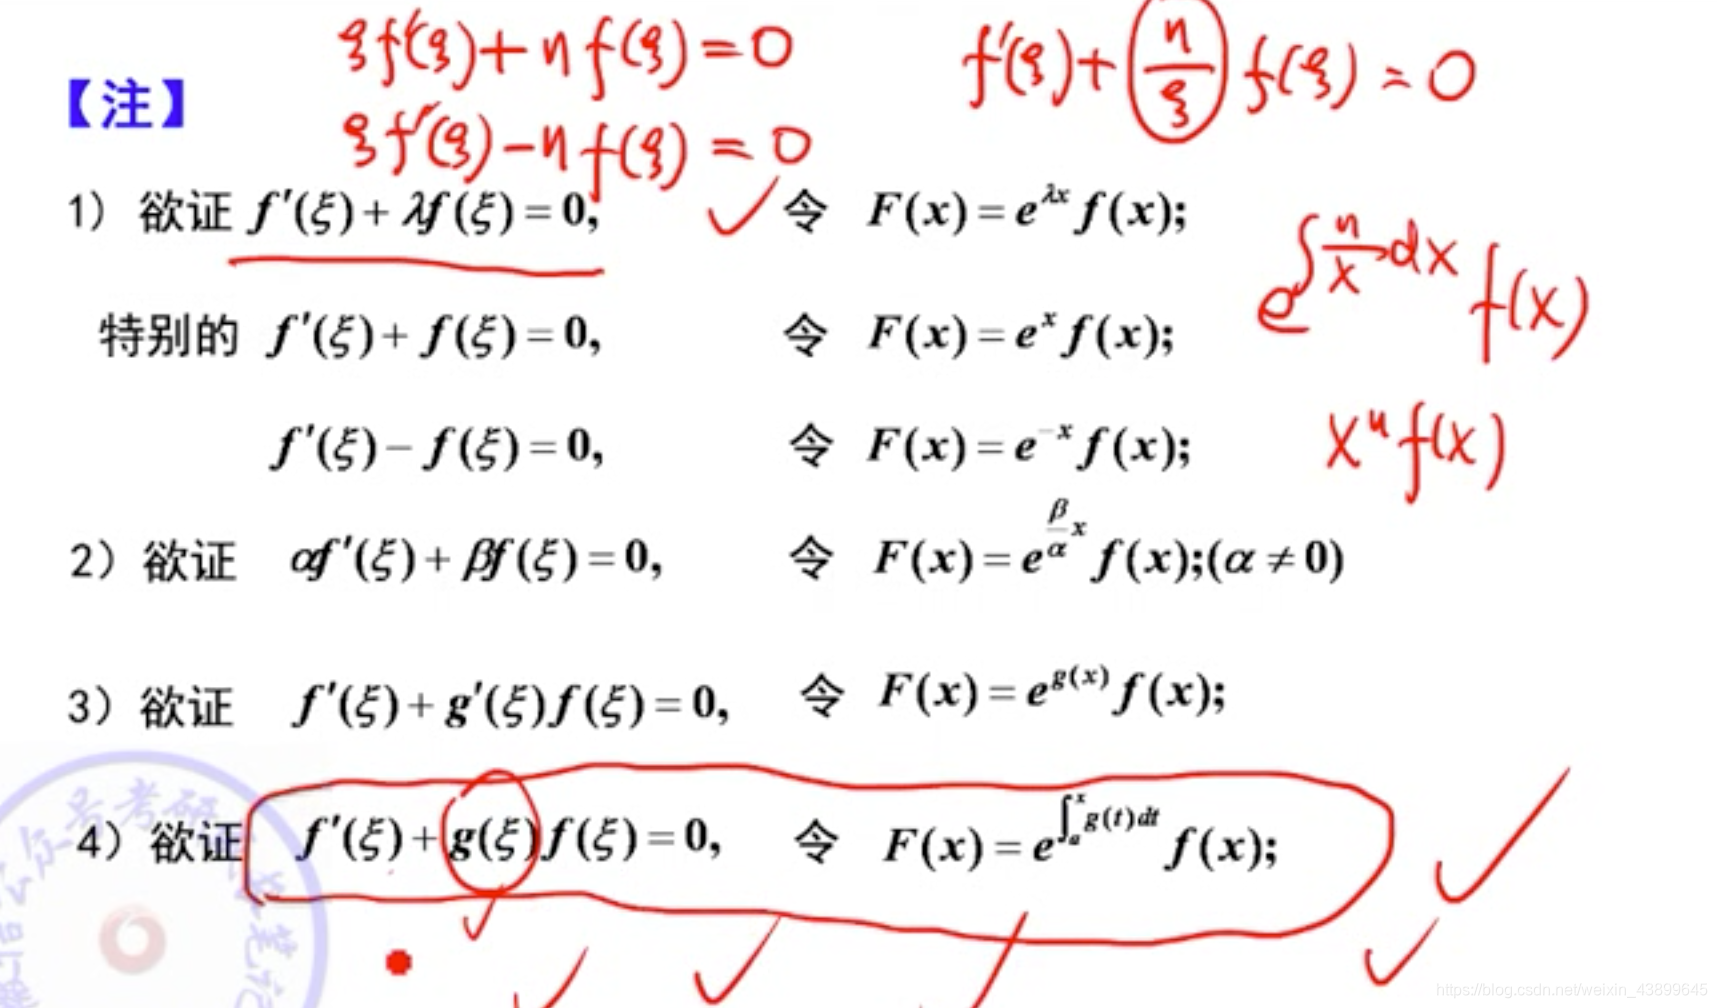 ξf'(ξ)+nf(ξ)=0
f'(ξ)+n/ξ f(ξ)=0
【注】
ξf'(ξ)-nf(ξ)=0
1）欲证 f'(ξ)+λf(ξ)=0, 令 F(x)=e^{λx}f(x);
e^{∫n/x dx}f(x)
特别的 f'(ξ)+f(ξ)=0, 令 F(x)=e^{x}f(x);
f'(ξ)-f(ξ)=0, 令 F(x)=e^{-x}f(x);
x^{n}f(x)
2）欲证 αf'(ξ)+βf(ξ)=0, 令 F(x)=e^{β/α x}f(x);(α≠0)
3）欲证 f'(ξ)+g'(ξ)f(ξ)=0, 令 F(x)=e^{g(x)}f(x);
4）欲证 f'(ξ)+g(ξ)f(ξ)=0, 令 F(x)=e^{∫_a^x g(t)dt}f(x);
https://blog.csdn.net/weixin_43899645